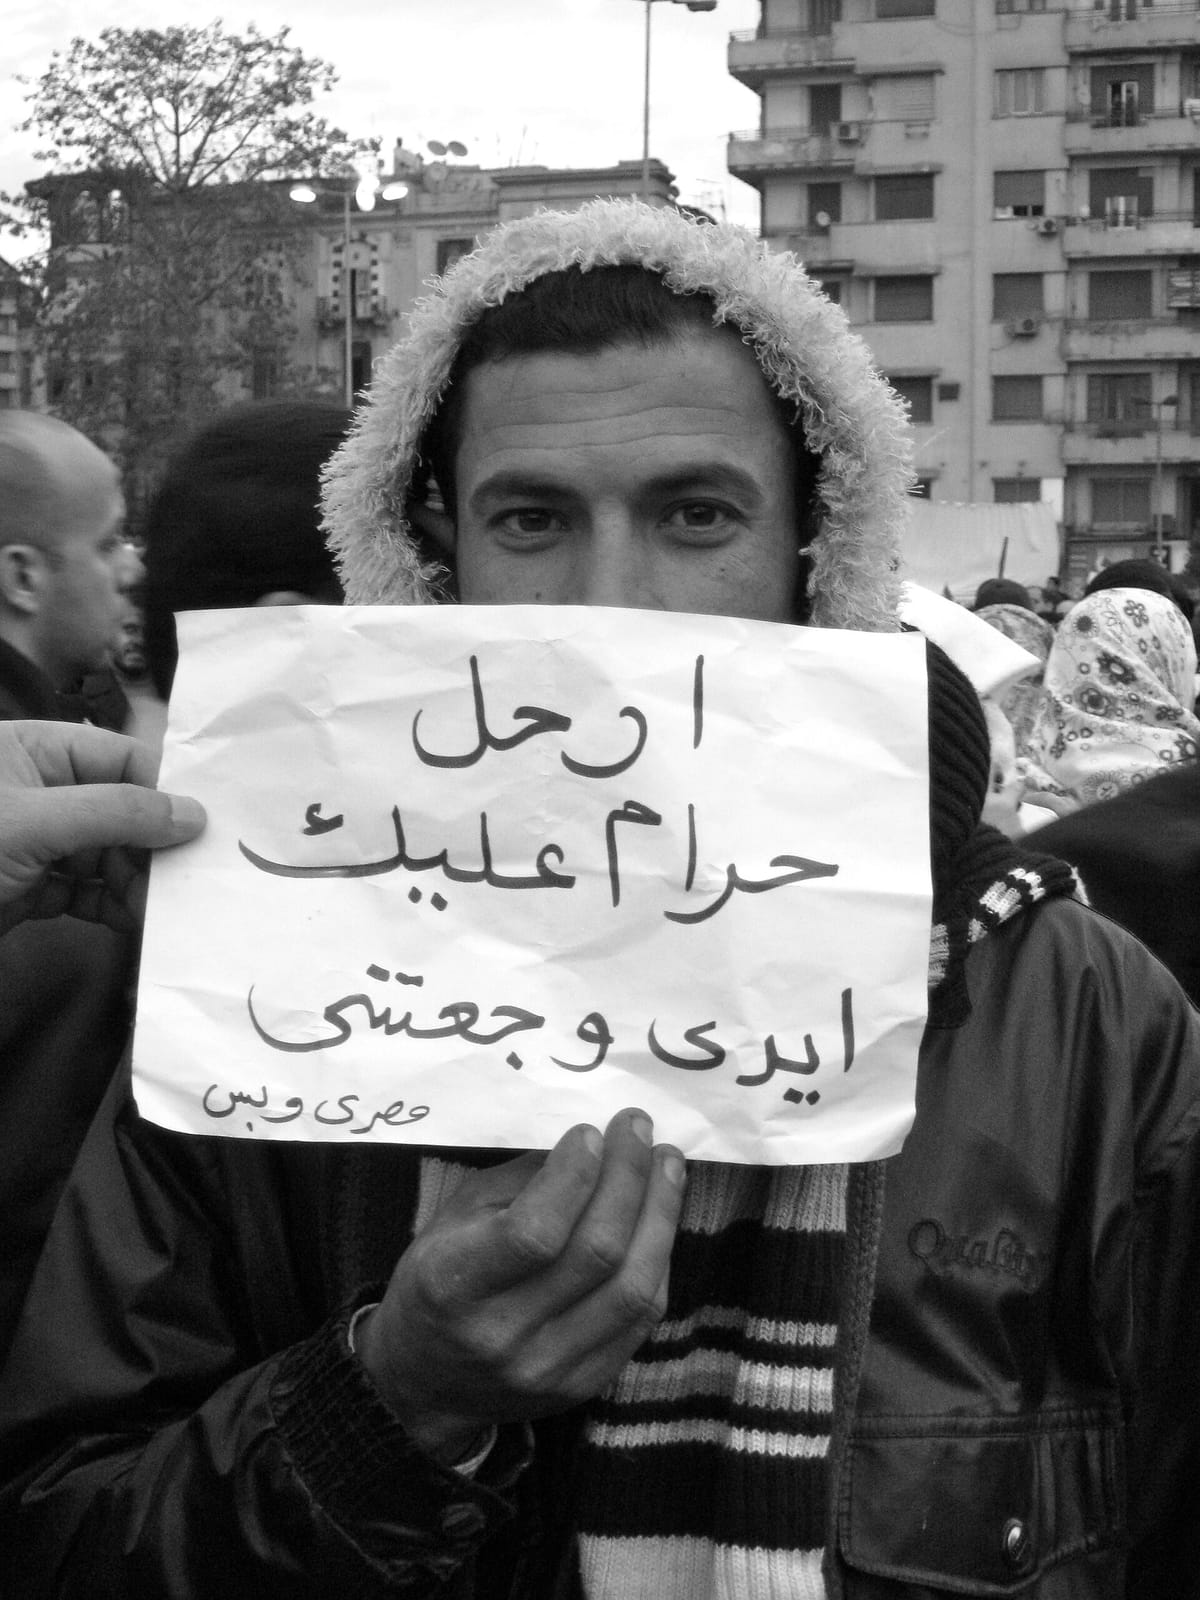 ارحل
حرام عليك
ايدى وجعتنى
مصرى وبس
Quality